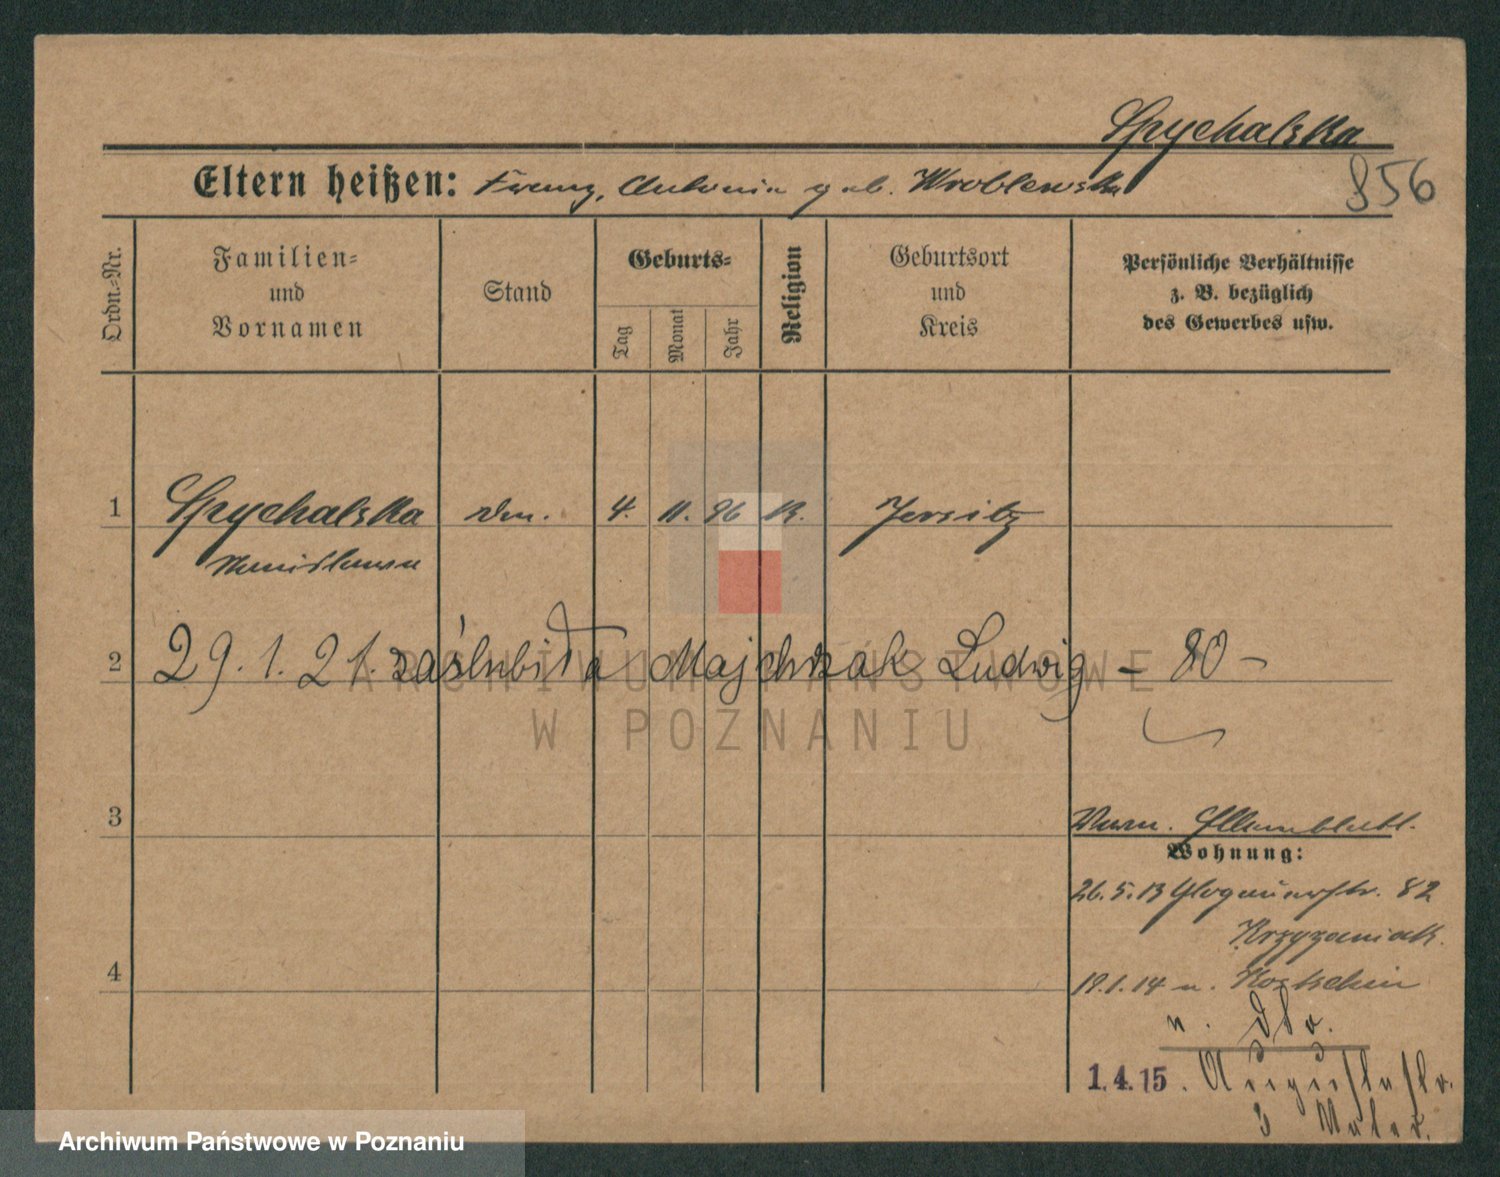 Spychalska
856
Eltern heißen: Franz, Antonia geb. Wroblewska
Ordn.-Nr.
Familien-
und
Vornamen
Stand
Geburts-
Tag
Monat
Jahr
Religion
Geburtsort
und
Kreis
Persönliche Verhältnisse
z. B. bezüglich
des Gewerbes usw.
1 Spychalska 4. 11. 96 K. Jersitz
Stanislawa
2 29.1.21. zaślubiła Majchrzak Ludwig – 80 –
ARCHIWUM PAŃSTWOWE
W POZNANIU
3
Wohnung:
26.5.13 Glogauerstr. 82
Krzyzaniak.
4
19.1.14 n. Kostschin
1.4.15. Augustastr.
3
Archiwum Państwowe w Poznaniu